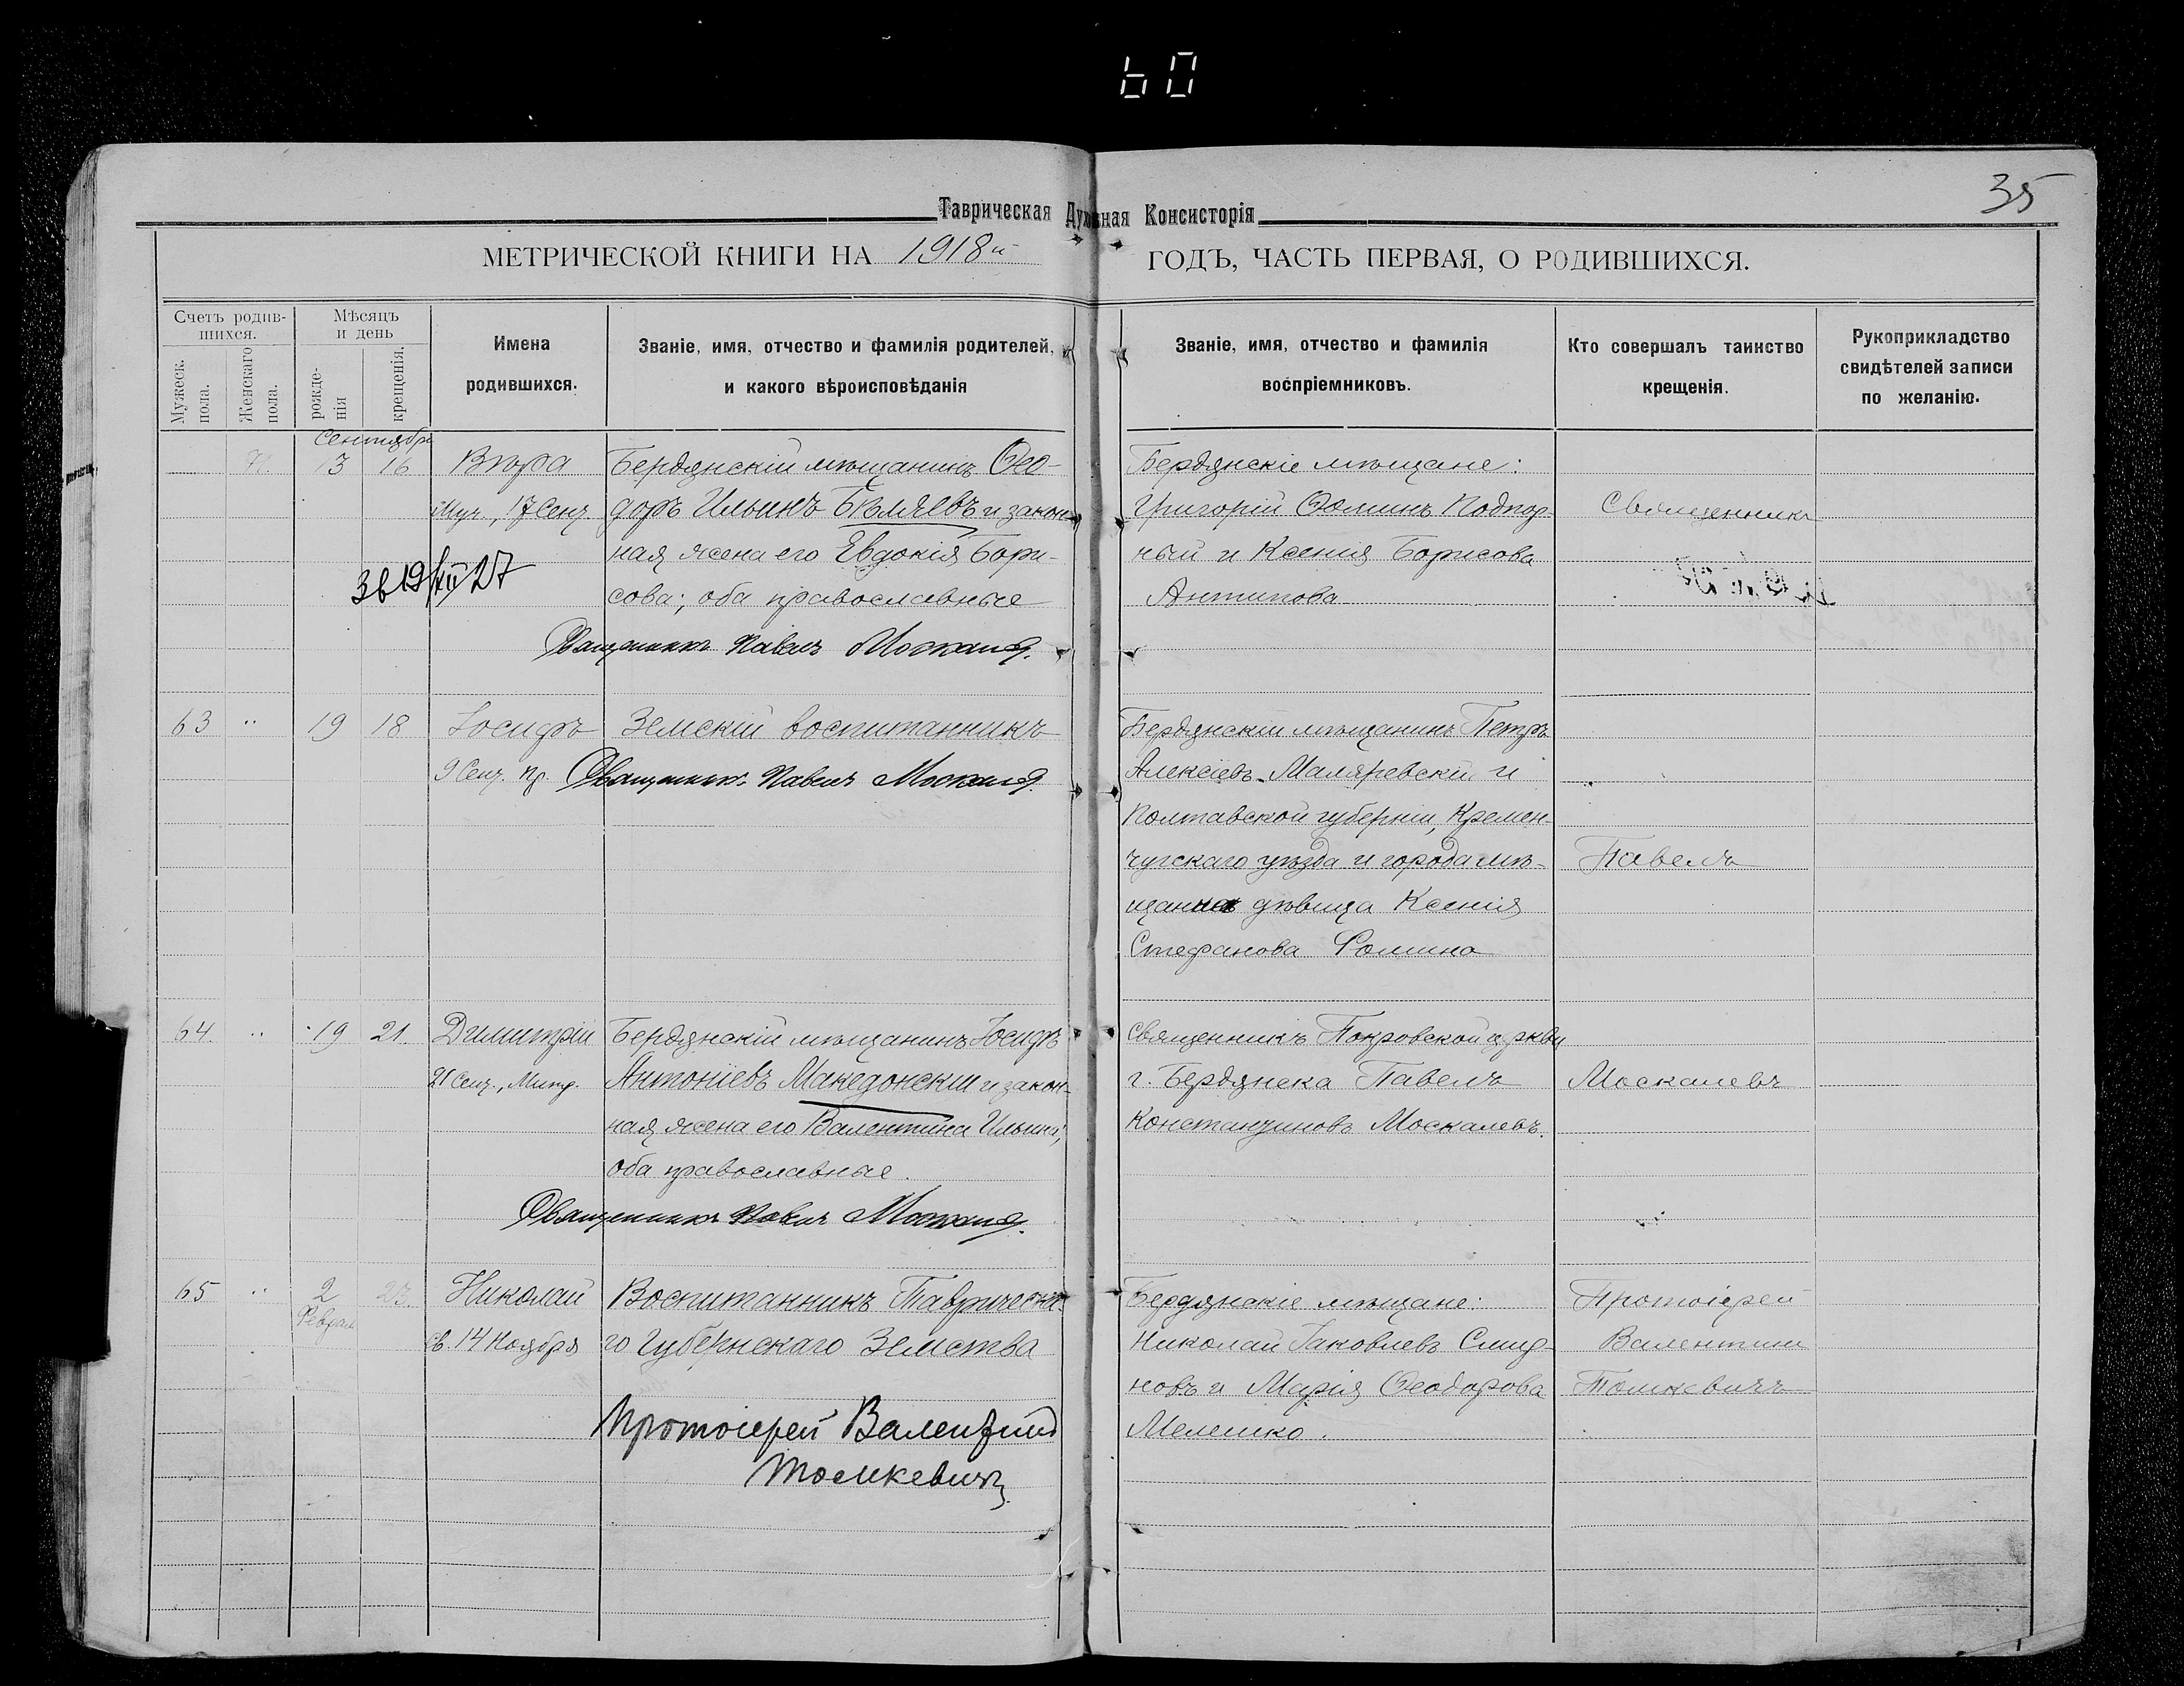 60
35
Таврическая Духовная Консисторія
МЕТРИЧЕСКОЙ КНИГИ НА 1918й ГОДЪ, ЧАСТЬ ПЕРВАЯ, О РОДИВШИХСЯ.
Счетъ родив-
шихся.
Мужеск.
пола.
Женскаго
пола.
Мѣсяцъ
и день
рожде-
нія
крещенія.
Имена
родившихся.
Званіе, имя, отчество и фамилія родителей,
и какого вѣроисповѣданія
Званіе, имя, отчество и фамилія
воспріемниковъ.
Кто совершалъ таинство
крещенія.
Рукоприкладство
свидѣтелей записи
по желанію.
Сентябрь
3 16 Вѣра Бердянскій мѣщанинъ Ѳео-
Муч., 17 Сент. доръ Ильинъ Бѣляевъ и закон-
ная жена его Евдокія Бори-
сова; оба православные
Зв 19/XII 27
Священникъ Павелъ Москалев.
Бердянскіе мѣщане:
Григорій Ѳоминъ Подпор-
ный и Ксенія Борисова
Антипова
Священникъ
63 " 19 18 Іосифъ Земскій воспитанникъ
9 Сент. пр. Священникъ Павелъ Москалев.
Бердянскій мѣщанинъ Петръ
Алексіевъ Маляревскій и
Полтавской губерніи, Кремен-
чугскаго уѣзда и города мѣ-
щанка дѣвица Ксенія
Стефанова Фомина
Павелъ
64. " 19 21. Димитрій Бердянскій мѣщанинъ Іосифъ
21 Сент., Митр. Антоніевъ Македонскій и закон-
ная жена его Валентина Ильина,
оба православные.
Священникъ Павелъ Москалев.
Священникъ Покровской церкви
г. Бердянска Павелъ
Константиновъ Москалевъ.
Москалевъ
65 " 2 23. Николай Воспитанникъ Таврическа-
Февраля
св. 14 Ноября го Губернскаго Земства
Протоіерей Валентинъ
Томкевичъ.
Бердянскіе мѣщане:
Николай Іаковлевъ Смир-
новъ и Марія Ѳеодорова
Мелешко.
Протоіерей
Валентинъ
Томкевичъ